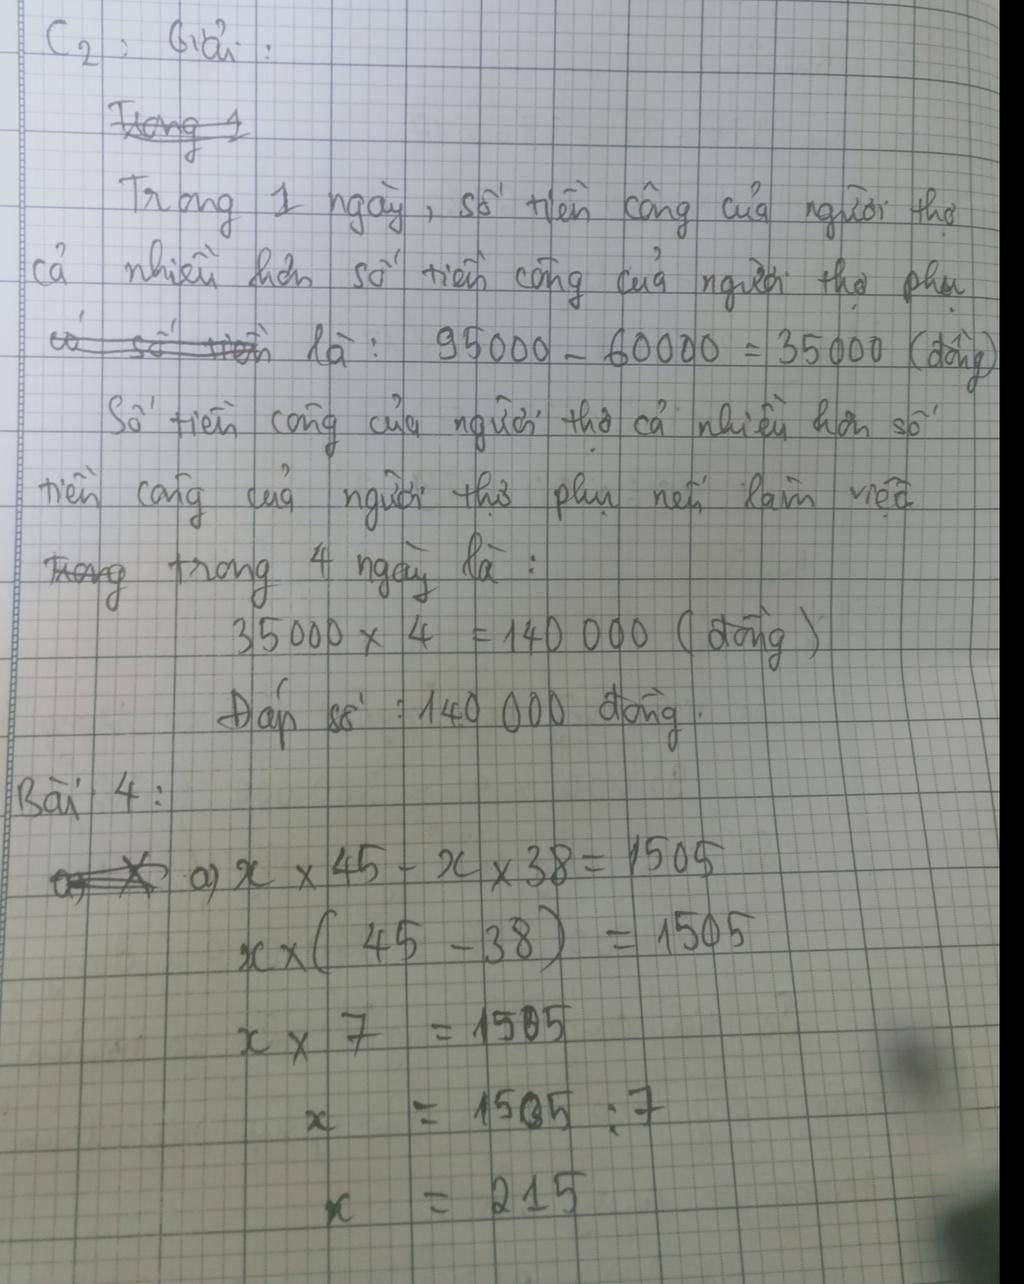 C2, Giải:
Trong 1
Trong 1 ngày, số tiền công của người thợ
cả nhiều hơn số tiền công của người thợ phụ
có số tiền là: 95000 - 60000 = 35000 (đồng)
Số tiền công của người thợ cả nhiều hơn số
tiền công của người thợ phụ nếu làm việc
trong trong 4 ngày là:
35000 x 4 = 140 000 (đồng)
Đáp số: 140 000 đồng.
Bài 4:
a) X a) x x 45 - x x 38 = 1505
x x ( 45 - 38) = 1505
x x 7 = 1505
x = 1505 : 7
x = 215